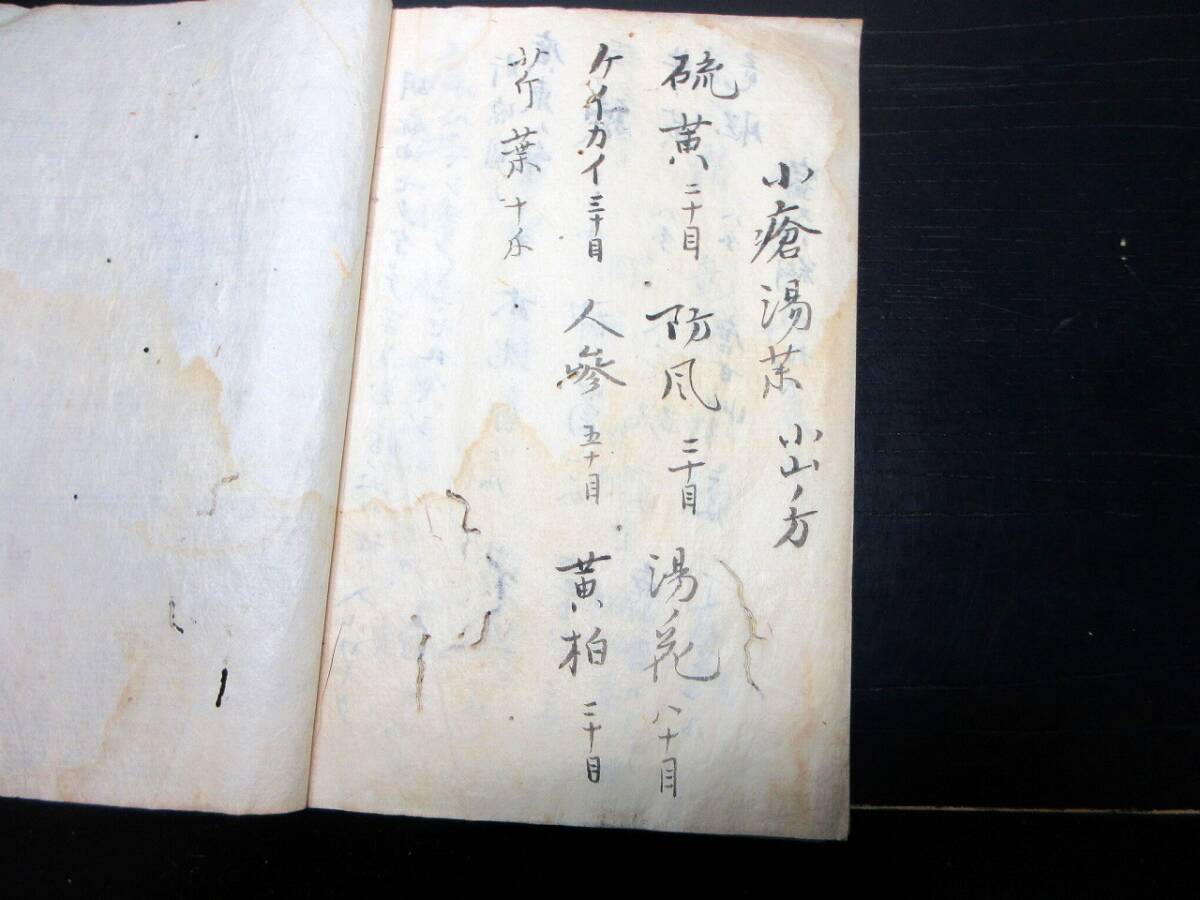 小瘡湯薬 小山ノ方
硫黄 二十目 防風 二十目 湯ノ花 八十目
ケイガイ 三十目 人参 五十目 黄柏 二十目
葉 十